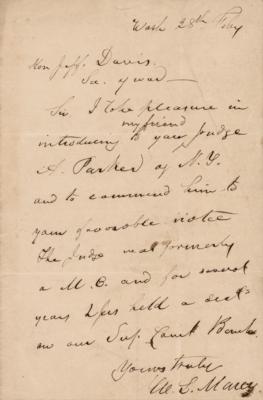 Wash 28th Feby
Hon Jeff. Davis.
Sec. of war
Sir I take pleasure in
my friend
introducing to you Judge
A. Parker of N.Y.
and to commend him to
your favorable notice
The Judge was formerly
a M.C. and for several
years has held a seat
on our Sup. Court Bench
Yours truly
W. L. Marcy